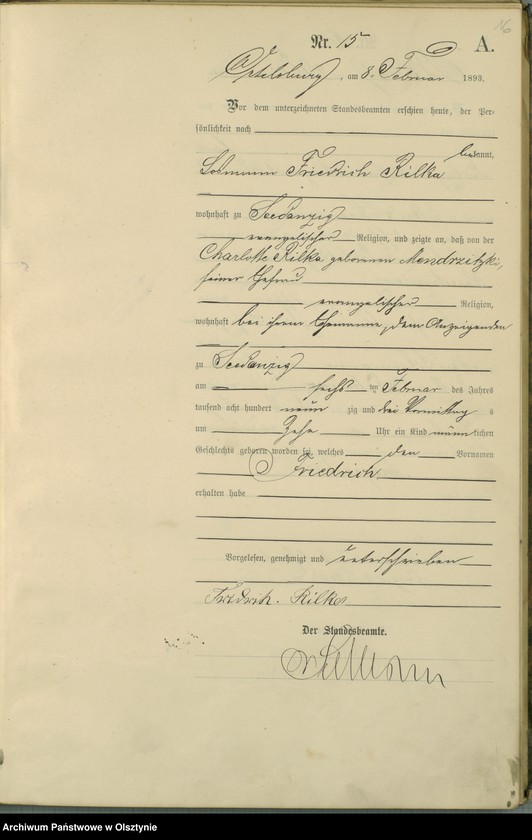 16
Nr. 15
A.
Ortelsburg, am 8. Februar 1893.
Vor dem unterzeichneten Standesbeamten erschien heute, der Per-
sönlichkeit nach
bekannt,
Losmann Friedrich Rilka
wohnhaft zu Seedanzig
evangelischer Religion, und zeigte an, daß von der
Charlotte Rilka geborenen Mendrzitzki,
seiner Ehefrau
evangelischer Religion,
wohnhaft bei ihrem Ehemanne, dem Anzeigenden
zu Seedanzig
am sechs ten Februar des Jahres
tausend acht hundert neun zig und drei Vormittag s
um Zehn Uhr ein Kind männlichen
Geschlechts geboren worden sei, welches den Vornamen
Friedrich
erhalten habe
Vorgelesen, genehmigt und unterschrieben
Fridrich. Rilka
Der Standesbeamte.
Archiwum Państwowe w Olsztynie